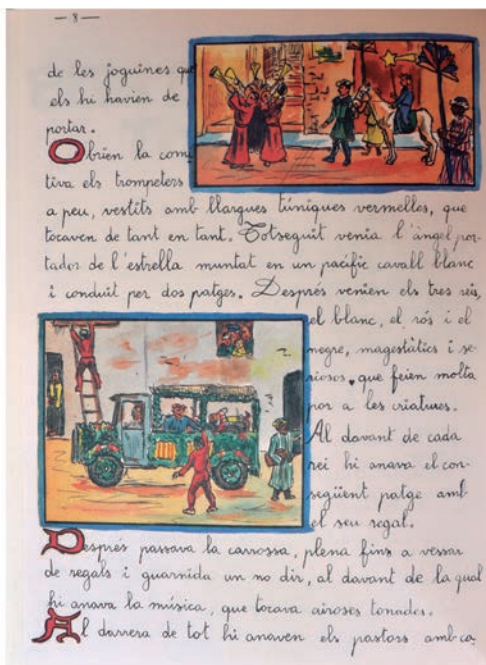 — 8 —
de les joguines que
els hi havien de
portar.
Obrien la comi
tiva els trompeters
a peu, vestits amb llargues túniques vermelles, que
tocaven de tant en tant. Totseguit venia l'àngel por-
tador de l'estrella muntat en un pacífic cavall blanc
i conduit per dos patges. Després venien els tres reis,
el blanc, el rós i el
negre, magestàtics i se-
riosos, que feien molta
por a les criatures.
Al davant de cada
rei hi anava el con-
següent patge amb
el seu regal.
Després passava la carrossa, plena fins a vessar
de regals i guarnida un no dir, al davant de la qual
hi anava la música, que tocava airoses tonades.
Al darrera de tot hi anaven els pastors amb ca-